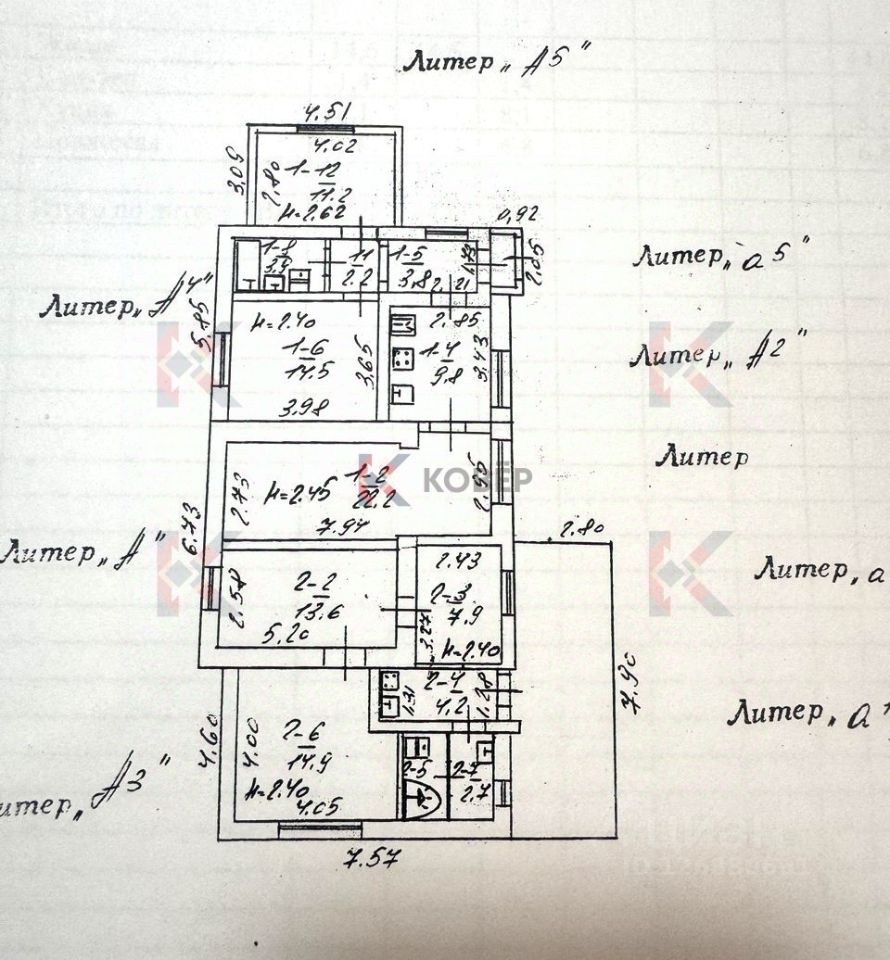 Литер „А5"
4.51
4.02
1-12
11.2
3.05
2.80
н=2.62
0,92
1-8
3.9
11
2.2
1-5
3.8
1.73
2.21
2.05
Литер „а5"
Литер „А4"
5.85
н=2.40
1-6
14.5
3.65
3.98
2.85
1-4
9.8
3.43
Литер „А2"
Литер
1-2
22.2
КОВЁР
н=2.45
2.73
7.94
2.55
6.73
Литер „А"
2.80
2-2
13.6
2.58
5.20
2.43
2-3
7.9
3.27
н=2.40
Литер „а
7.90
2-4
4.2
1.31
1.28
Литер „а
4.60
4.00
2-6
14.9
н=2.40
4.05
2-5
2-7
2.7
итер „А3"
7.57